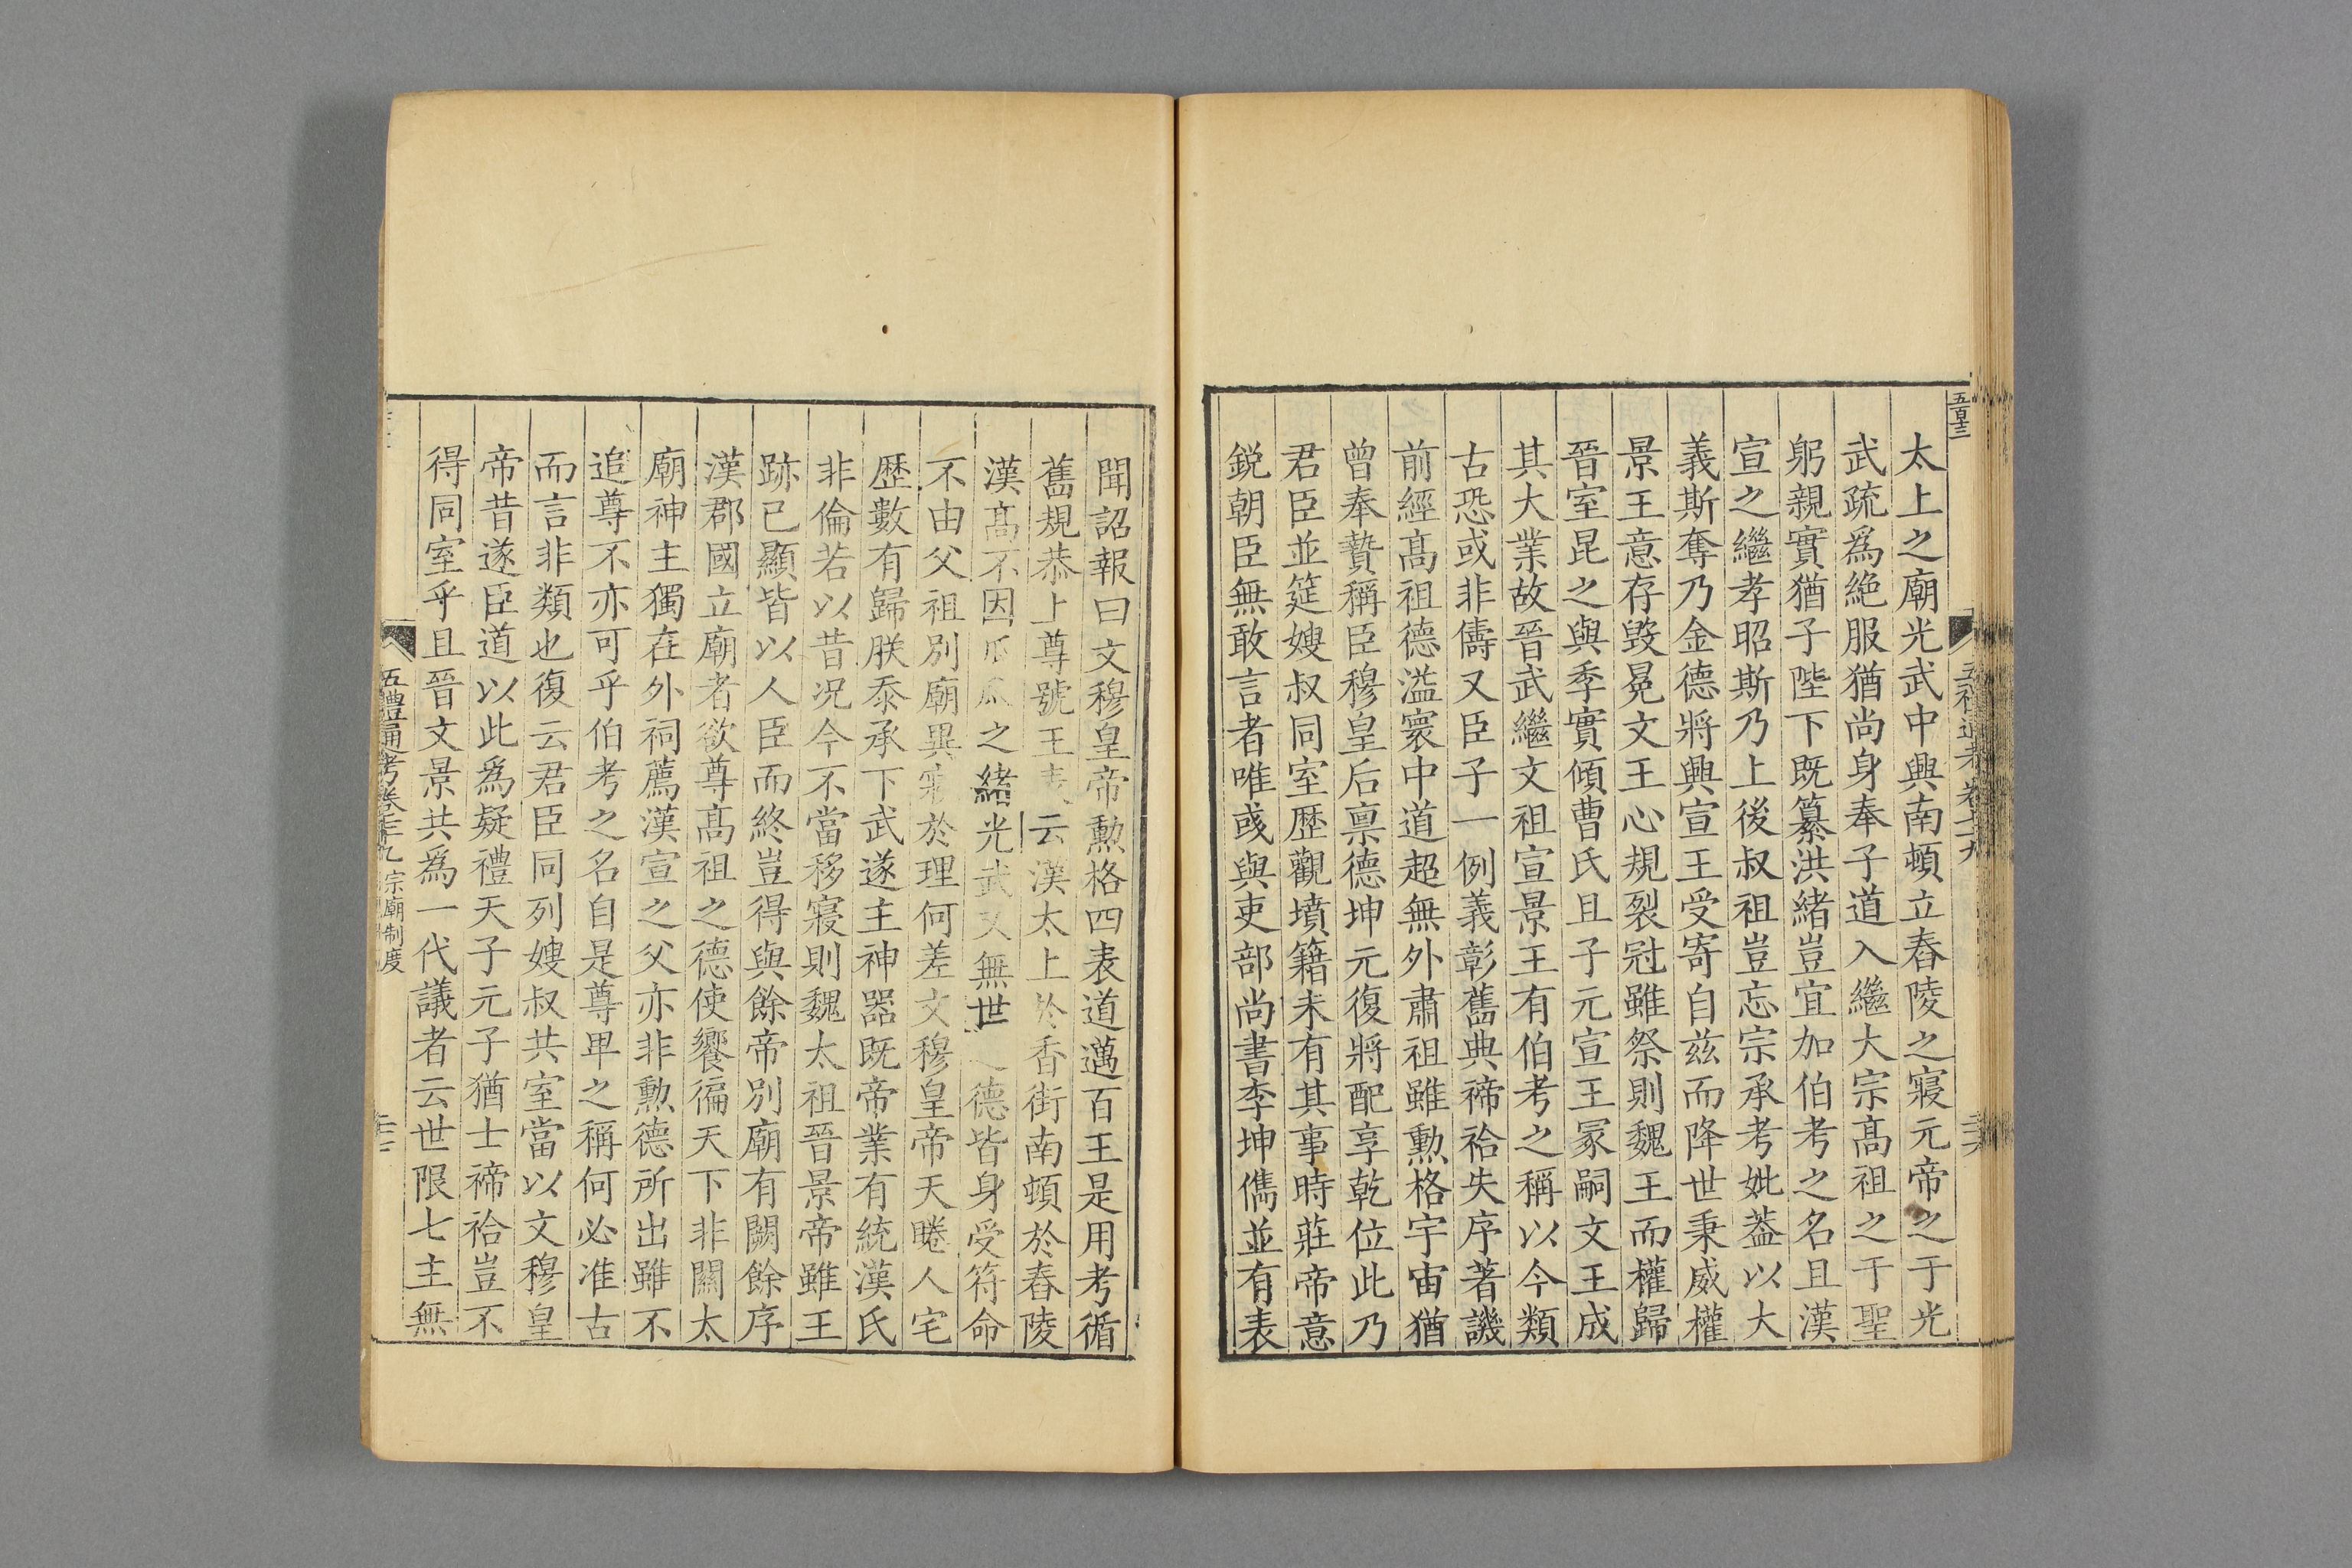 五百十三
太上之廟光武中興南頓立舂陵之寢元帝之于光
武疏爲絶服猶尚身奉子道入繼大宗髙祖之于聖
躬親實猶子陛下既纂洪緒豈宜加伯考之名且漢
宣之繼孝昭斯乃上後叔祖豈忘宗承考妣葢以大
義斯奪乃金德將興宣王受寄自兹而降世秉威權
景王意存毁冕文王心規裂冠雖祭則魏王而權歸
晉室昆之與季實傾曹氏且子元宣王冢嗣文王成
其大業故晉武繼文祖宣景王有伯考之稱以今類
古恐或非儔又臣子一例義彰舊典禘祫失序著譏
前經髙祖德溢寰中道超無外肅祖雖勲格宇宙猶
曾奉贄稱臣穆皇后禀德坤元復將配享乾位此乃
君臣並筵嫂叔同室歴觀墳籍未有其事時莊帝意
鋭朝臣無敢言者唯彧與吏部尚書李坤儁並有表
聞詔報曰文穆皇帝勲格四表道邁百王是用考循
舊規恭上尊號王表云漢太上於香街南頓於舂陵
漢髙不因瓜瓜之緒光武又無世之德皆身受符命
不由父祖別廟異寢於理何差文穆皇帝天睠人宅
歴數有歸朕忝承下武遂主神器既帝業有統漢氏
非倫若以昔况今不當移寢則魏太祖晉景帝雖王
跡已顯皆以人臣而終豈得與餘帝別廟有闕餘序
漢郡國立廟者欲尊髙祖之德使饗徧天下非關太
廟神主獨在外祠薦漢宣之父亦非勲德所出雖不
追尊不亦可乎伯考之名自是尊卑之稱何必准古
而言非類也復云君臣同列嫂叔共室當以文穆皇
帝昔遂臣道以此爲疑禮天子元子猶士禘祫豈不
得同室乎且晉文景共爲一代議者云世限七主無
五禮通考卷七十九 宗廟制度